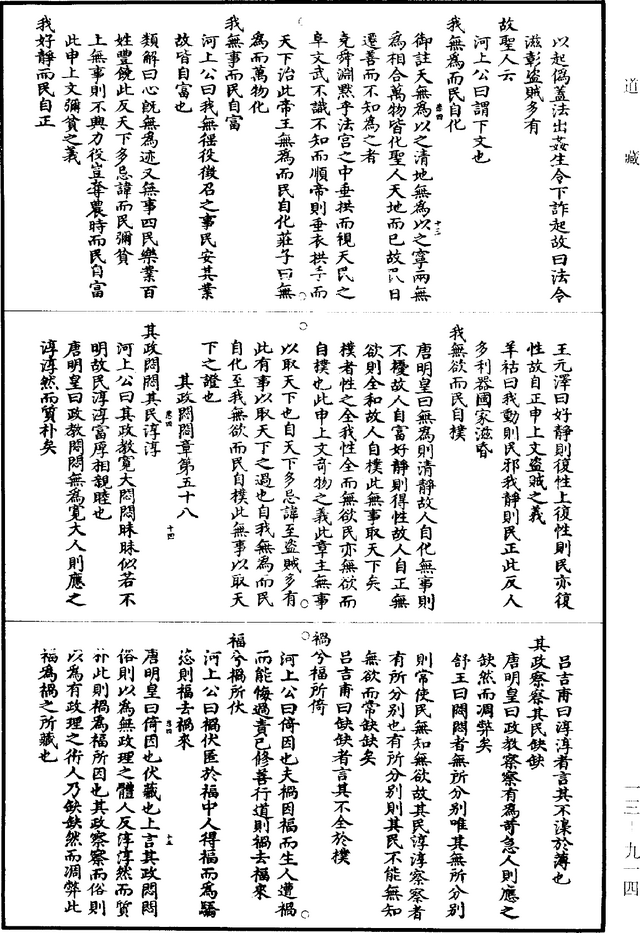 道藏
以起僞蓋法出姦生令下詐起故曰法令
滋彰盜賊多有
故聖人云
河上公曰謂下文也
我無為而民自化
卷四
十三
御註天無為以之清地無為以之寧兩無
為相合萬物皆化聖人天地而已故民日
遷善而不知為之者
堯舜淵默乎法宮之中垂拱而視天民之
阜文武不識不知而順帝則垂衣拱手而
天下治此帝王無為而民自化莊子曰無
為而萬物化
我無事而民自富
河上公曰我無徭役徵召之事民安其業
故皆自富也
類解曰心旣無為迹又無事四民樂業百
姓豐饒此反天下多忌諱而民彌貧
上無事則不興力役豈奪農時而民自富
此申上文彌貧之義
我好靜而民自正
王元澤曰好靜則復性上復性則民亦復
性故自正申上文盜賊之義
羊祜曰我動則民邪我靜則民正此反人
多利器國家滋昏
我無欲而民自樸
唐明皇曰無為則清靜故人自化無事則
不擾故人自富好靜則得性故人自正無
欲則全和故人自樸此無事取天下矣
樸者性之全我性全而無欲民亦無欲而
自樸也此申上文奇物之義此章主無事
以取天下也自天下多忌諱至盜賊多有
此有事以取天下之過也自我無為而民
自化至我無欲而民自樸此無事以取天
下之證也
其政悶悶章第五十八
卷四
十四
其政悶悶其民淳淳
河上公曰其政教寬大悶悶昧昧似若不
明故民淳淳富厚相親睦也
唐明皇曰政教悶悶無為寬大人則應之
淳淳然而質朴矣
呂吉甫曰淳淳者言其不澆於薄也
其政察察其民缺缺
唐明皇曰政教察察有為苛急人則應之
缺缺然而凋弊矣
舒王曰悶悶者無所分別唯其無所分別
則常使民無知無欲故其民淳淳察察者
有所分別也有所分別則其民不能無知
無欲而常缺缺矣
呂吉甫曰缺缺者言其不全於樸
禍兮福所倚
河上公曰倚因也夫禍因福而生人遭禍
而能悔過責己修善行道則禍去福來
福兮禍所伏
河上公曰禍伏匿於福中人得福而為驕
恣則福去禍來
卷四
十五
唐明皇曰倚因也伏藏也上言其政悶悶
俗則以為無政理之體人反淳淳然而質
朴此則禍為福所因也其政察察而俗則
以為有政理之術人乃缺缺然而凋弊此
福為禍之所藏也
一三—九一四